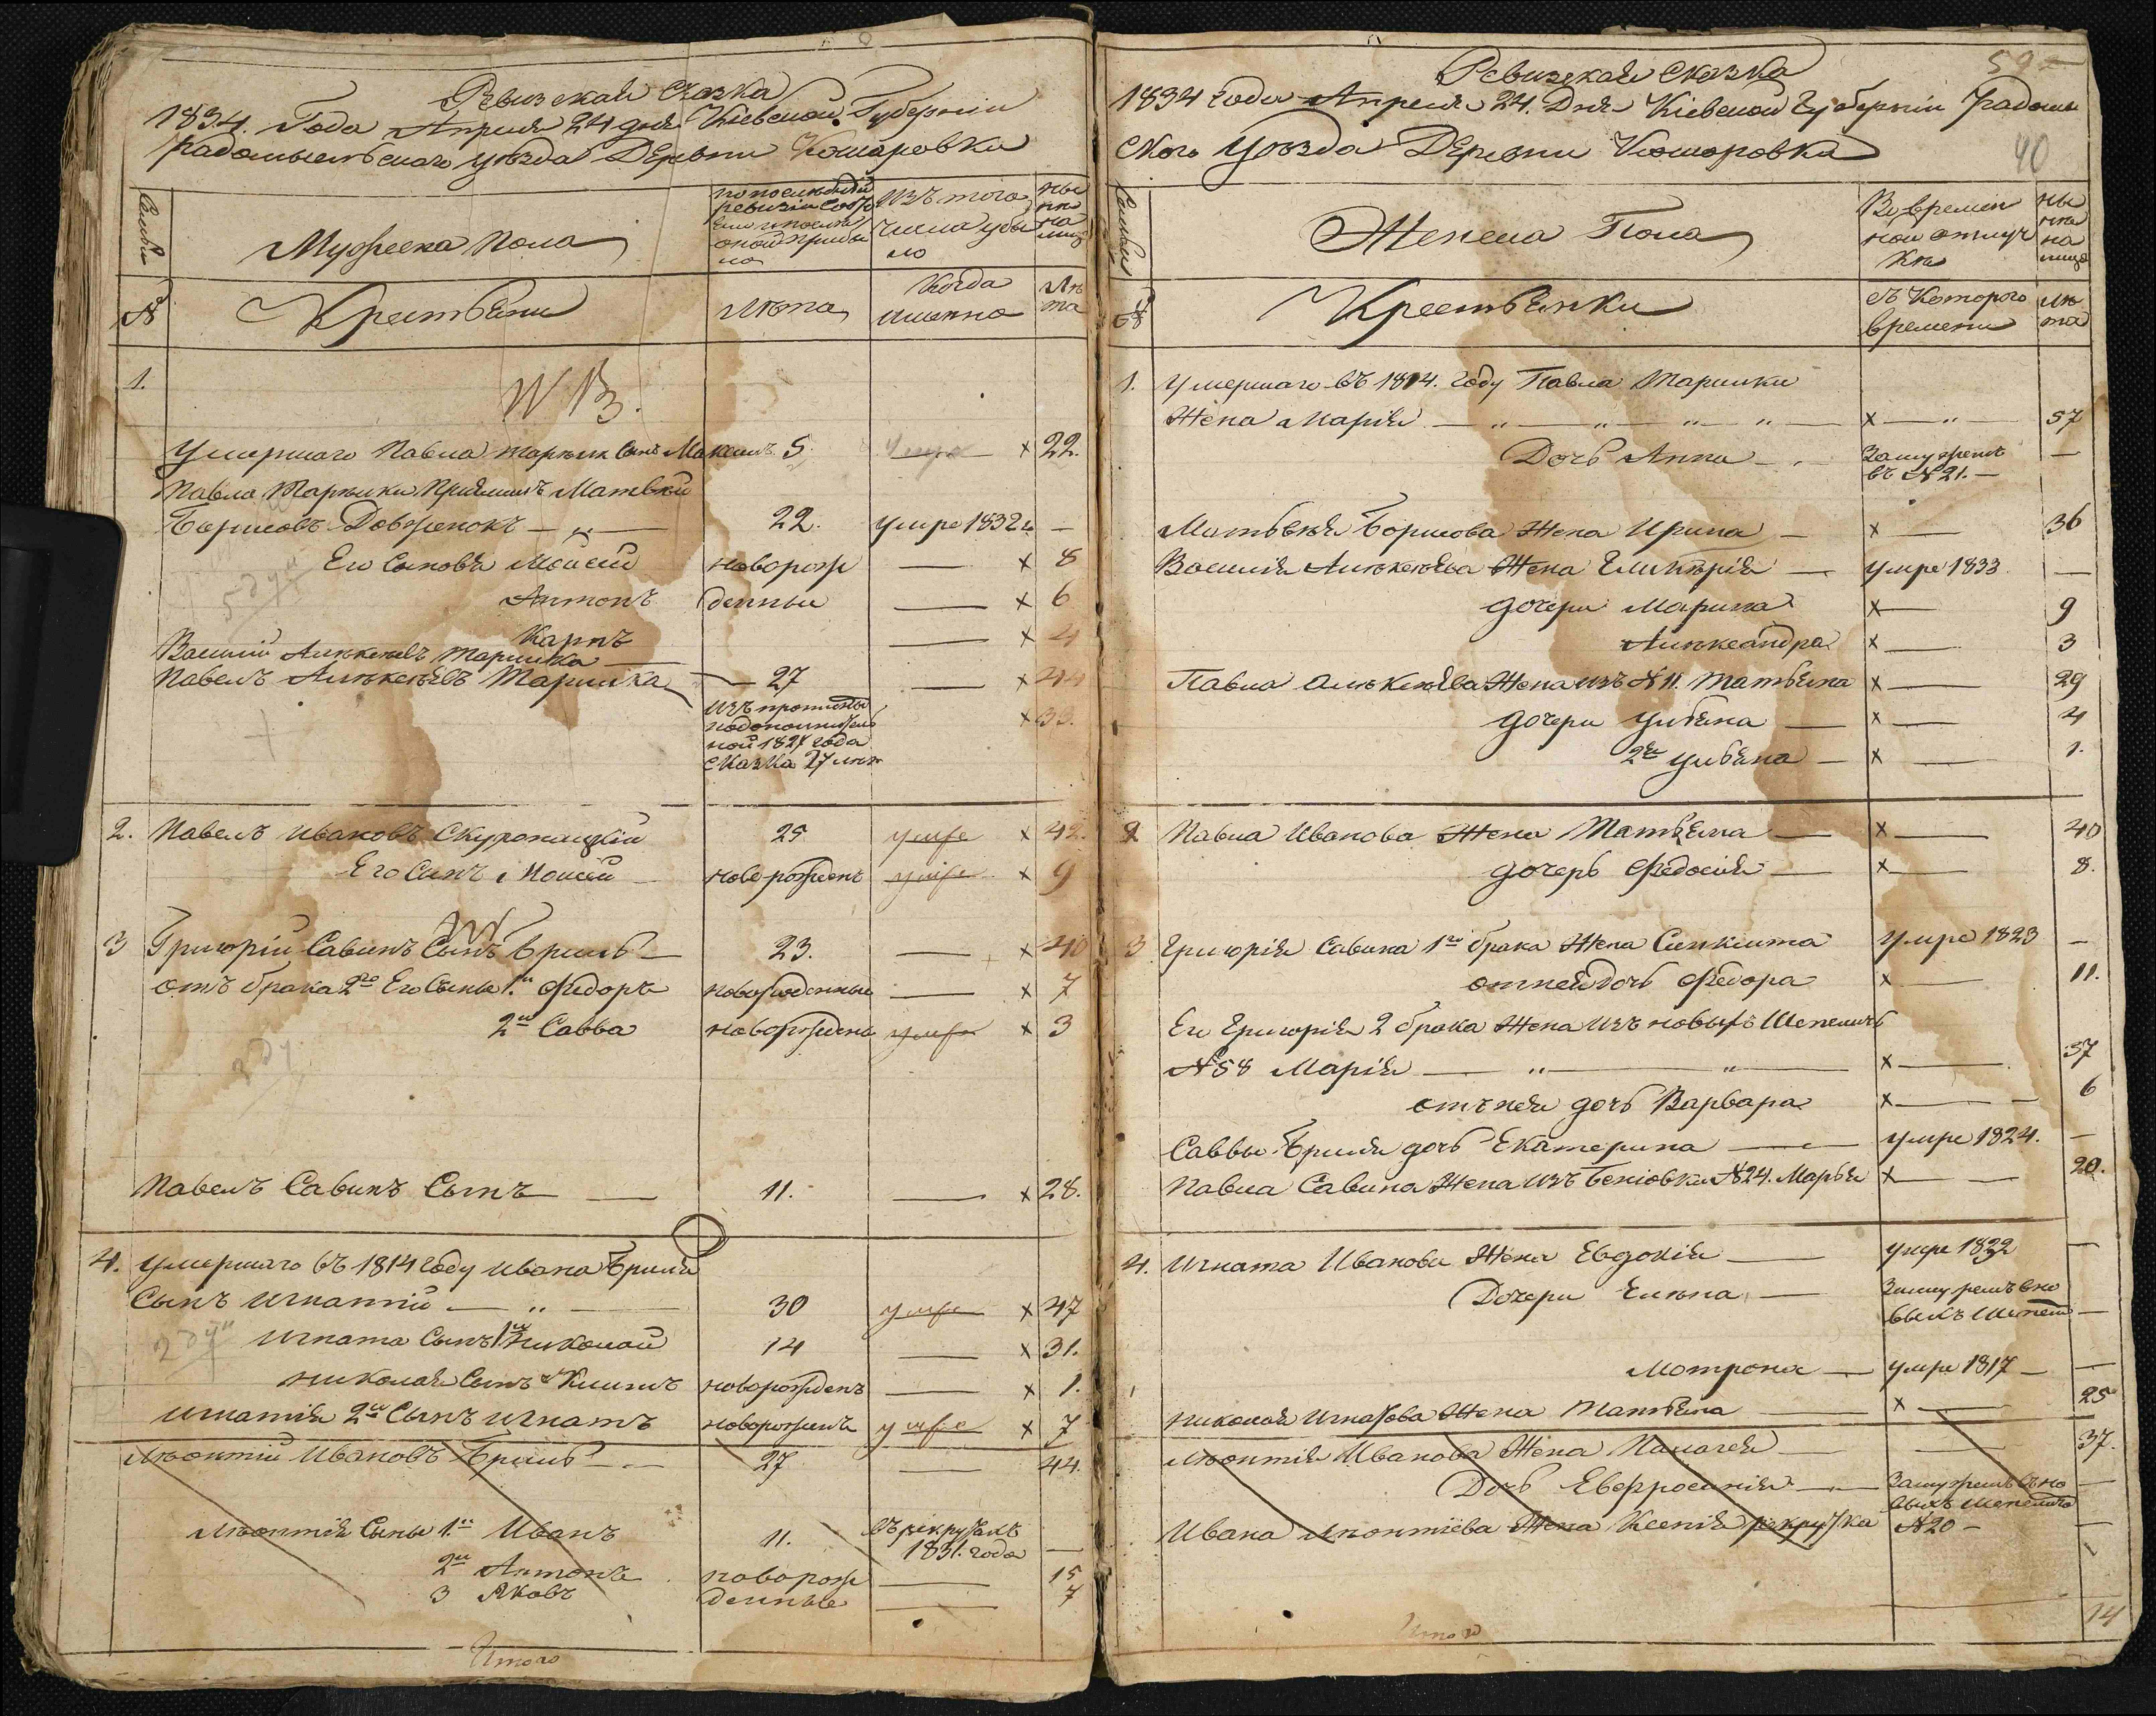 Ревизская сказка
1834. Года Апреля 24 дня Кіевской Губерніи
Радомысльскаго уѣзда Деревни Комаровки
Семьи
Мужеска пола
по последней ревизіи состояло и после оной прибыло
изъ того числа убыло
ныне на лицо
№
Крестьяни
Лѣта
Когда именно
Лѣта
1.
NB.
Умершаго Павла Сынъ Максимъ 5. умре × 22.
Павла Приймышъ Матвей
Борисовъ Довженокъ — „ — 22. умре 1832 г. —
Его Сыновья Моисей новорож — × 8
Антонъ денные — × 6
Карпъ — × 4
Василий Алексеевъ — 27 — × 44
Павелъ Алексѣевъ изъ × 33.
1827 года
сказка 27 лет
2. Павелъ Ивановъ Скуропацкій 25 умре × 42.
Его Сынъ Моисій новорожденъ умре × 9
3 Григорій Савинъ Сынъ Бриль 23. — × 40
отъ брака 2го Его Сыны 1й Федоръ новорожденные — × 7
2й Савва новорожденъ умре × 3
Павелъ Савинъ Сынъ — 11. — × 28.
4. Умершаго въ 1814 году Ивана Бриля
Сынъ Игнатий — „ — 30 умре × 47
Игната Сынъ 1й Николай 14 — × 31.
Николая Сынъ Климъ новорожденъ — × 1.
Игнатія 2й Сынъ Игнатъ новорожденъ умре × 7
Леонтий Ивановъ Бриль — 27 — 44.
Леонтия Сыны 1й Иванъ 11. въ рекрутахъ 1831. года —
2й Антонъ новорож — 15
3 Яковъ денные — 7
Итого
Ревизская сказка
1834 года Апреля 24. Дня Кіевской Губерніи Радомысль
скаго Уѣзда Деревни Комаровки
40
Семьи
Женска Пола
Во временной отлучке
ныне на лицо
№
Крестьянки
съ Которого времени
лѣта
1. Умершаго въ 1814. году Павла
Жена Марія — „ — „ — „ — „ — × — „ — 57
Дочь Анна — замужемъ въ №21. — —
Матвѣя Борисова Жена Ирина — × — 36
Василія Алексѣева Жена Гликерія — умре 1833. —
дочери Марина × — 9
Александра × — 3
Павла Алексѣева Жена изъ №11. Татьяна × — 29
дочери Ульяна — × — 4
2я Ульяна — × — 1.
2 Павла Иванова Жена Татьяна — × — 40
дочерь Федосия — × — 8.
3 Григорія Савина 1го брака Жена умре 1823 —
отнея дочь Федора × — 11.
Его Григорія 2 брака Жена изъ новыхъ Шепеличъ
№58 Марія — „ — „ — × — 37
отъ нея дочь Варвара × — 6
Саввы Бриля дочь Екатерина — умре 1824. —
Павла Савина Жена изъ Беніовки №24. Марья × — 20.
4. Игната Иванова Жена Евдокія — умре 1832 —
Дочери Елена — замужемъ вно
выхъ Шепели —
Мотрона — умре 1817 — —
Николая Игнатова Жена Татьяна × — 25
Леонтия Иванова Жена Палагея — — 37.
Дочь Евфросиния — Замужемъ въ но
выхъ Шепеличъ
Ивана Леонтіева Жена Ксенія рекрутка №20 — —
14
Итого